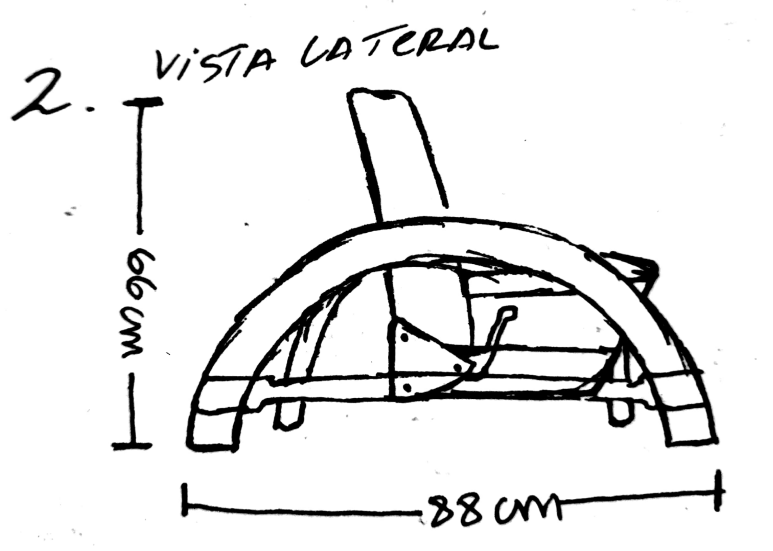 2. VISTA LATERAL
66 cm
88 cm